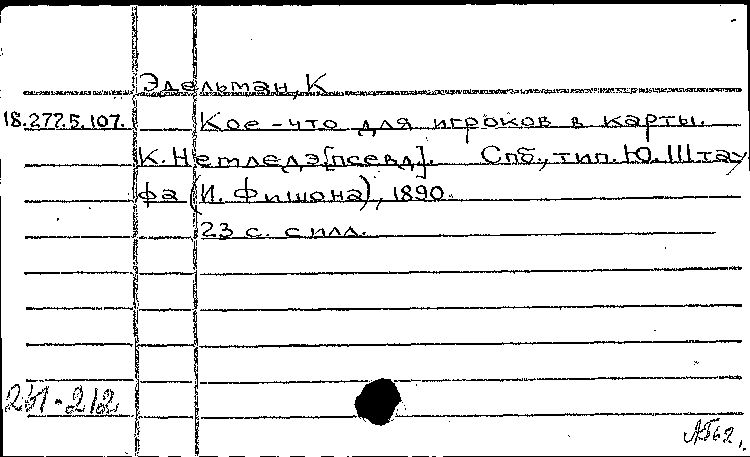 Эдельман, К
18.277.5.107. Кое-что для игроков в карты.
К. Нетледэ [псевд]. Спб., тип. Ю. Штау
фа (И. Фишона), 1890.
23 с. с илл.